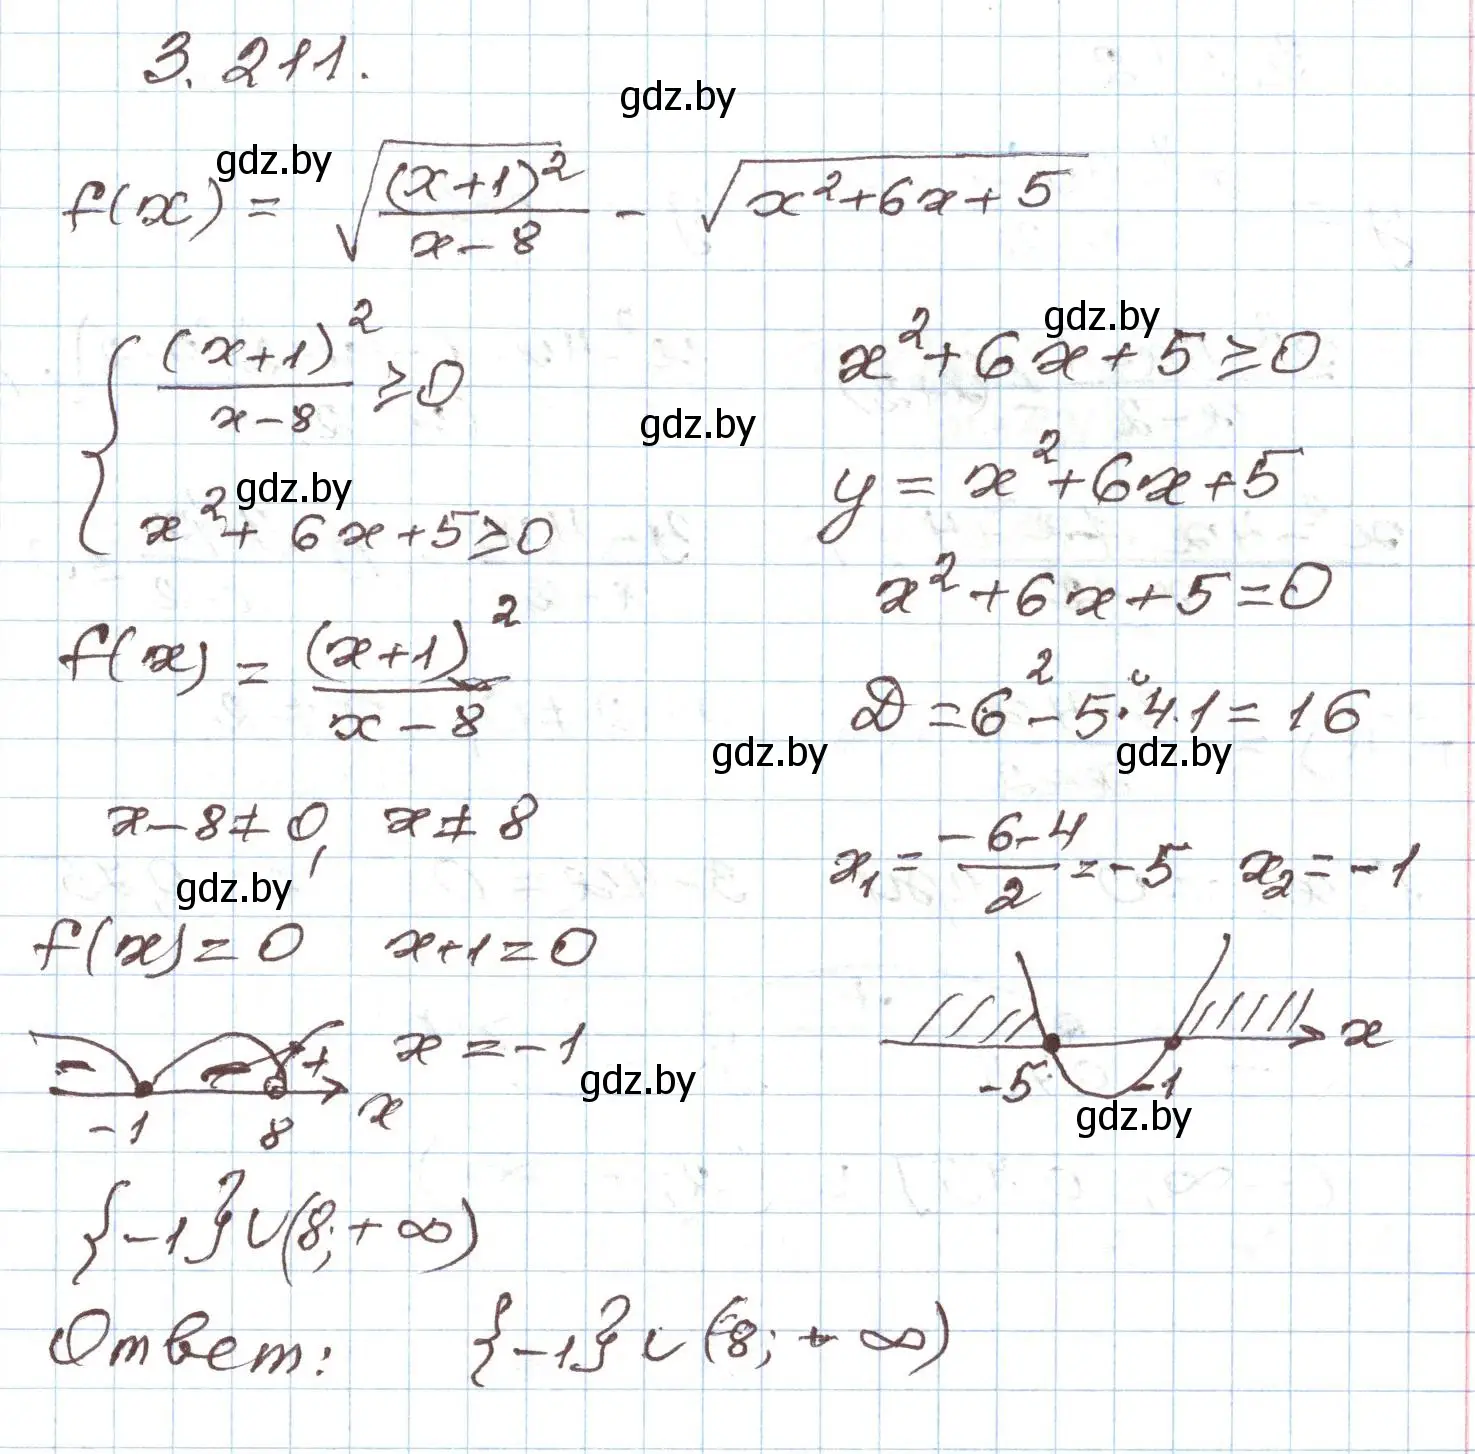 3.211.
gdz.by
gdz.by
f(x) = √((x+1)²/(x-8)) - √(x²+6x+5)
{ (x+1)²/(x-8) ≥ 0
x²+6x+5≥0
gdz.by
x²+6x+5≥0
gdz.by
gdz.by
y = x²+6x+5
x²+6x+5=0
f(x) = (x+1)²/(x-8)
D=6²-5·4·1=16
gdz.by
gdz.by
x-8≠0, x≠8
x₁=(-6-4)/2=-5 x₂=-1
gdz.by
f(x)=0 x+1=0
x=-1
gdz.by
- - + x
-1 8
x
-5 -1
gdz.by
{-1}∪(8;+∞)
Ответ: {-1}∪(8;+∞)